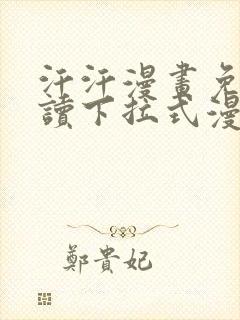 汗汗漫畫免
讀下拉式漫
鄭貴妃